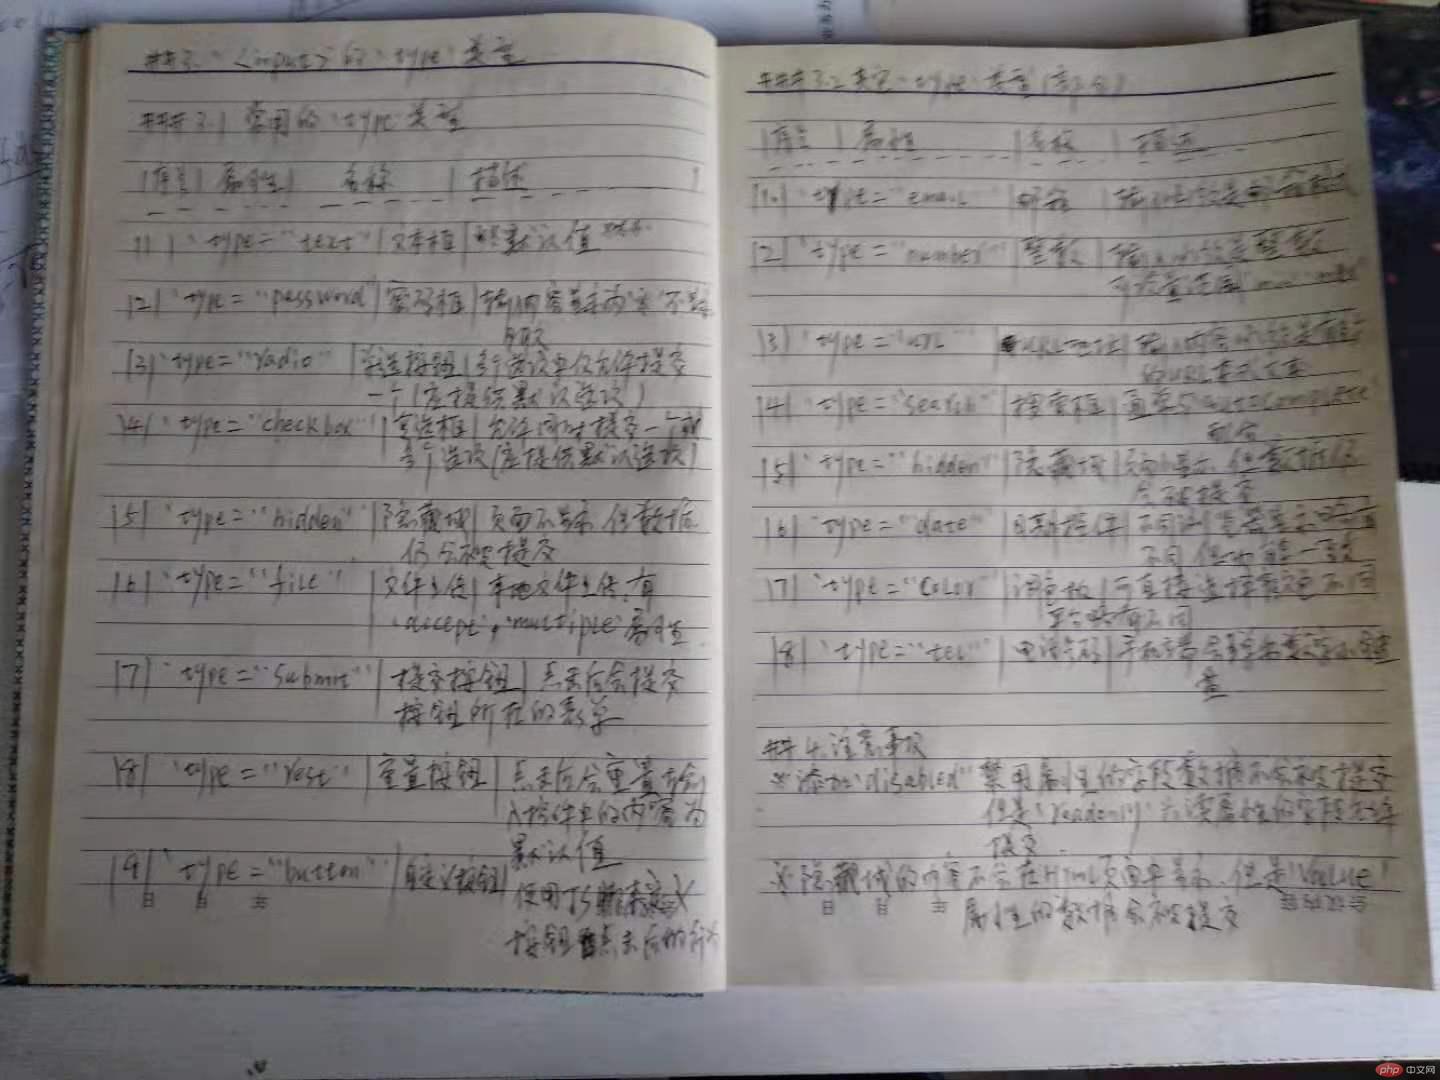 ## 3. `<input>`的`type`类型
### 3.1 常用的`type`类型
|序号|属性| 名称 |描述 |
|1|`type="text"|文本框|默认值
|2|`type="password"|密码框|输入内容显示为"*"不是
|3|`type="radio"|单选按钮|多个选项中仅允许提交
一个(应提供默认选项)
|4|`type="checkbox"|复选框|允许同时提交一个或
多个选项(应提供默认选项)
|5|`type="hidden"|隐藏域|页面不显示,但数据
仍会被提交
|6|`type="file"|文件上传|本地文件上传,有
`accept`,`multiple`属性
|7|`type="submit"|提交按钮|点击后会提交
按钮所在的表单
|8|`type="rest"|重置按钮|点击后会重置
入控件中的内容为
默认值
|9|`type="button"|自定义按钮|
使用JS来定义
按钮点击后的行为
### 3.2 其它`type`类型
|序号|属性 |名称 |描述
|1|`type="email |邮箱 |输入
|2|`type="number"|整数|输入必须是整数
可设置范围"min" "max"
|3|`type="URL"|URL地址|输入内容必须是有效
的URL格式文本
|4|`type="search"|搜索框|通常与autocomplete
配合
|5|`type="hidden"|隐藏域|页面不显示,但数据仍
会被提交
|6|`type="date"|日期控件|不同浏览器显示
不同但功能一致
|7|`type="color"|调色板|可直接选择颜色不同
平台略有不同
|8|`type="tel"|电话号码|手机端会弹出数字小键
盘
## 4.注意事项
※添加`disabled`禁用属性的字段数据不会被提交
但是`readonly`只读属性的字段允许
提交.
※隐藏域的内容不会在HTML页面中显示,但是`value`
属性的数据会被提交
php 中文网